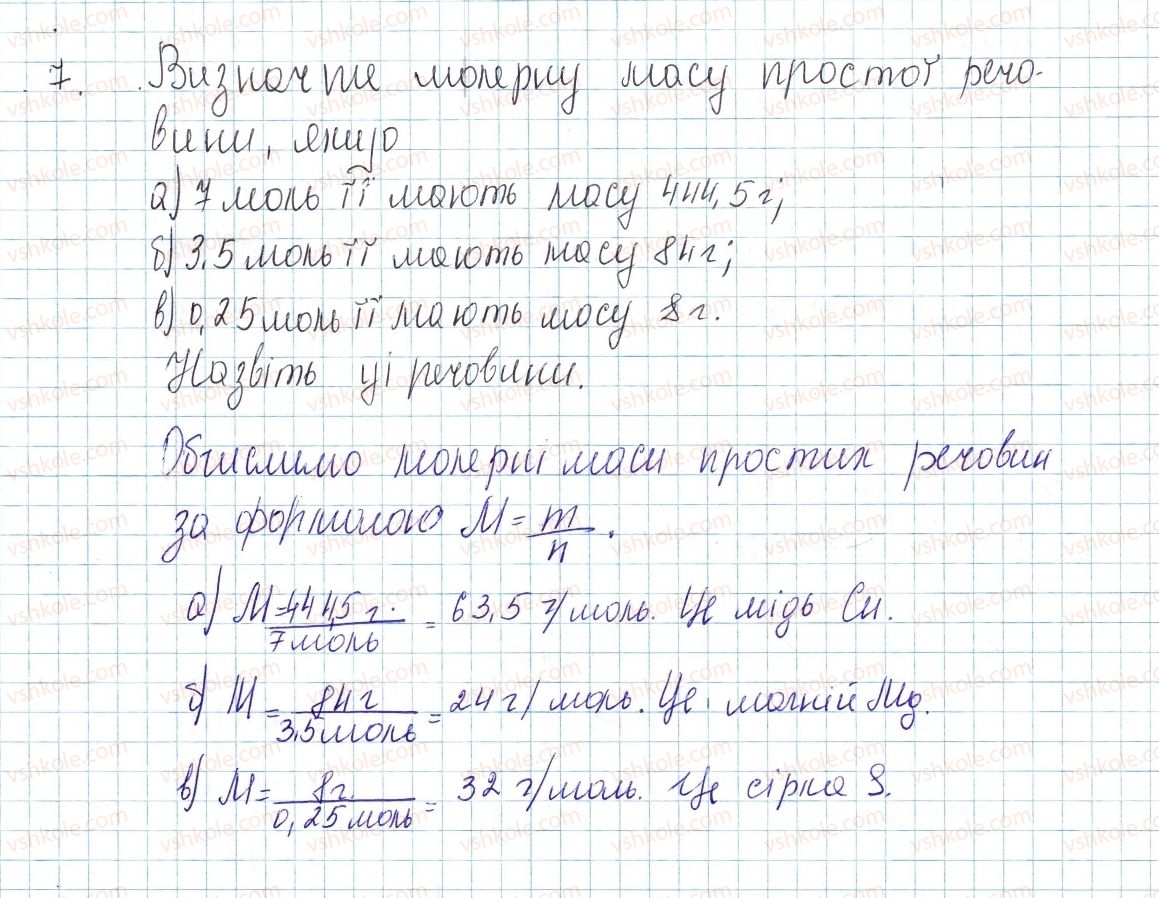 7. Визначте молярну масу простої речо-
вини, якщо
а) 7 моль її мають масу 444,5 г;
б) 3,5 моль її мають масу 84 г;
в) 0,25 моль її мають масу 8 г.
Назвіть ці речовини.
Обчислимо молярні маси простих речовин
за формулою M = m/n.
а) M = 444,5 г / 7 моль = 63,5 г/моль. Це мідь Cu.
б) M = 84 г / 3,5 моль = 24 г/моль. Це магній Mg.
в) M = 8 г / 0,25 моль = 32 г/моль. Це сірка S.
vshkole.com